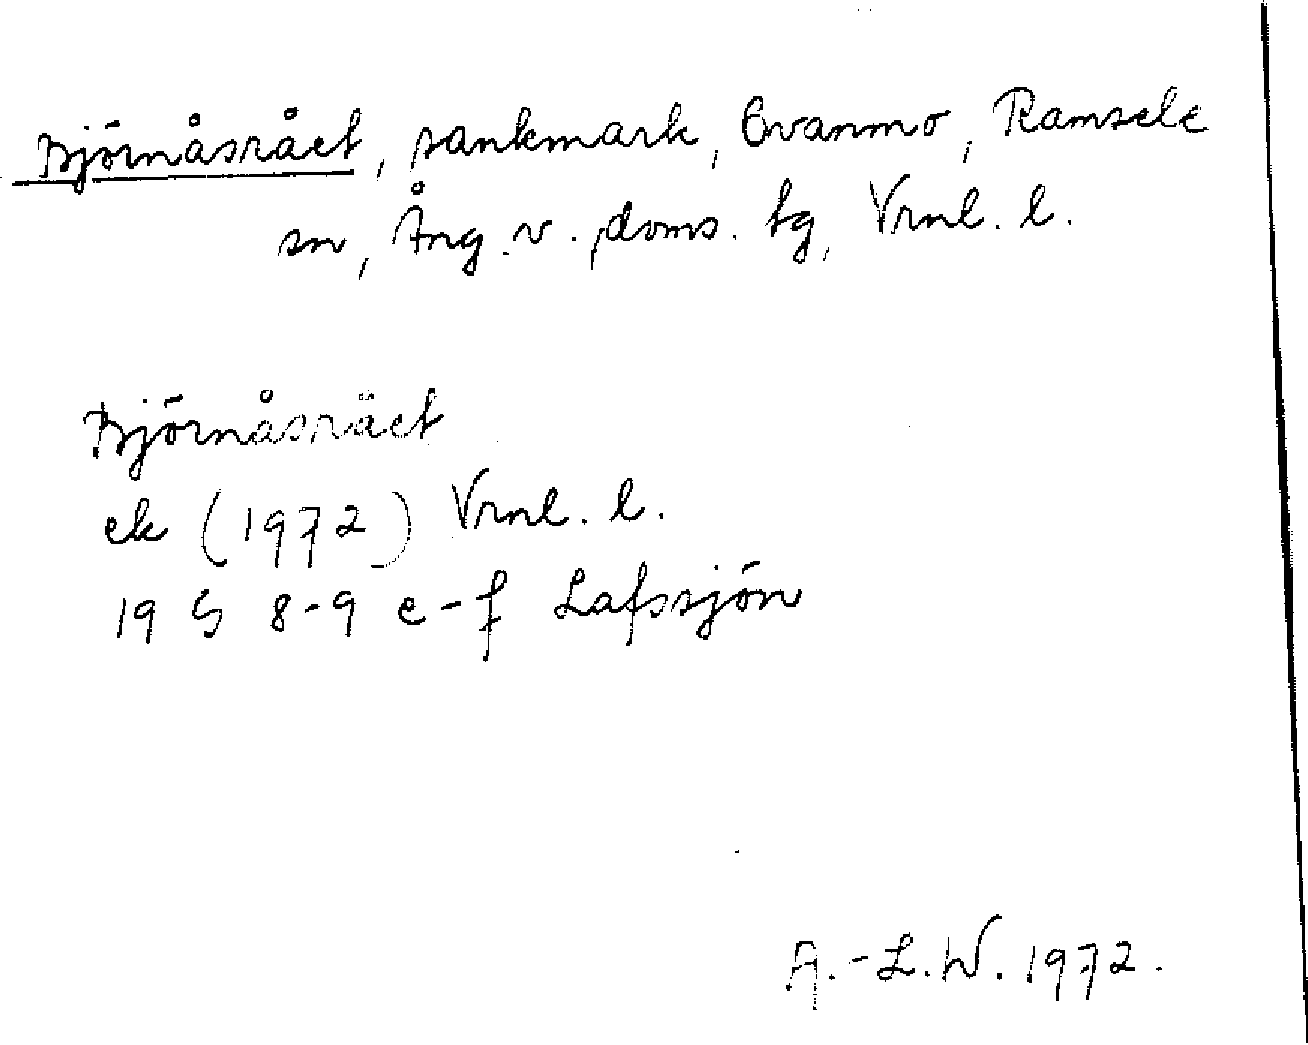 Björnåsråët, sankmark, Ovanmo, Ramsele
sn, Ång. v., doms. tg, Vrnl. l.
Björnåsråët
ek (1972) Vrnl. l.
19 G 8-9 e-f Lafssjön
A.-L.W. 1972.